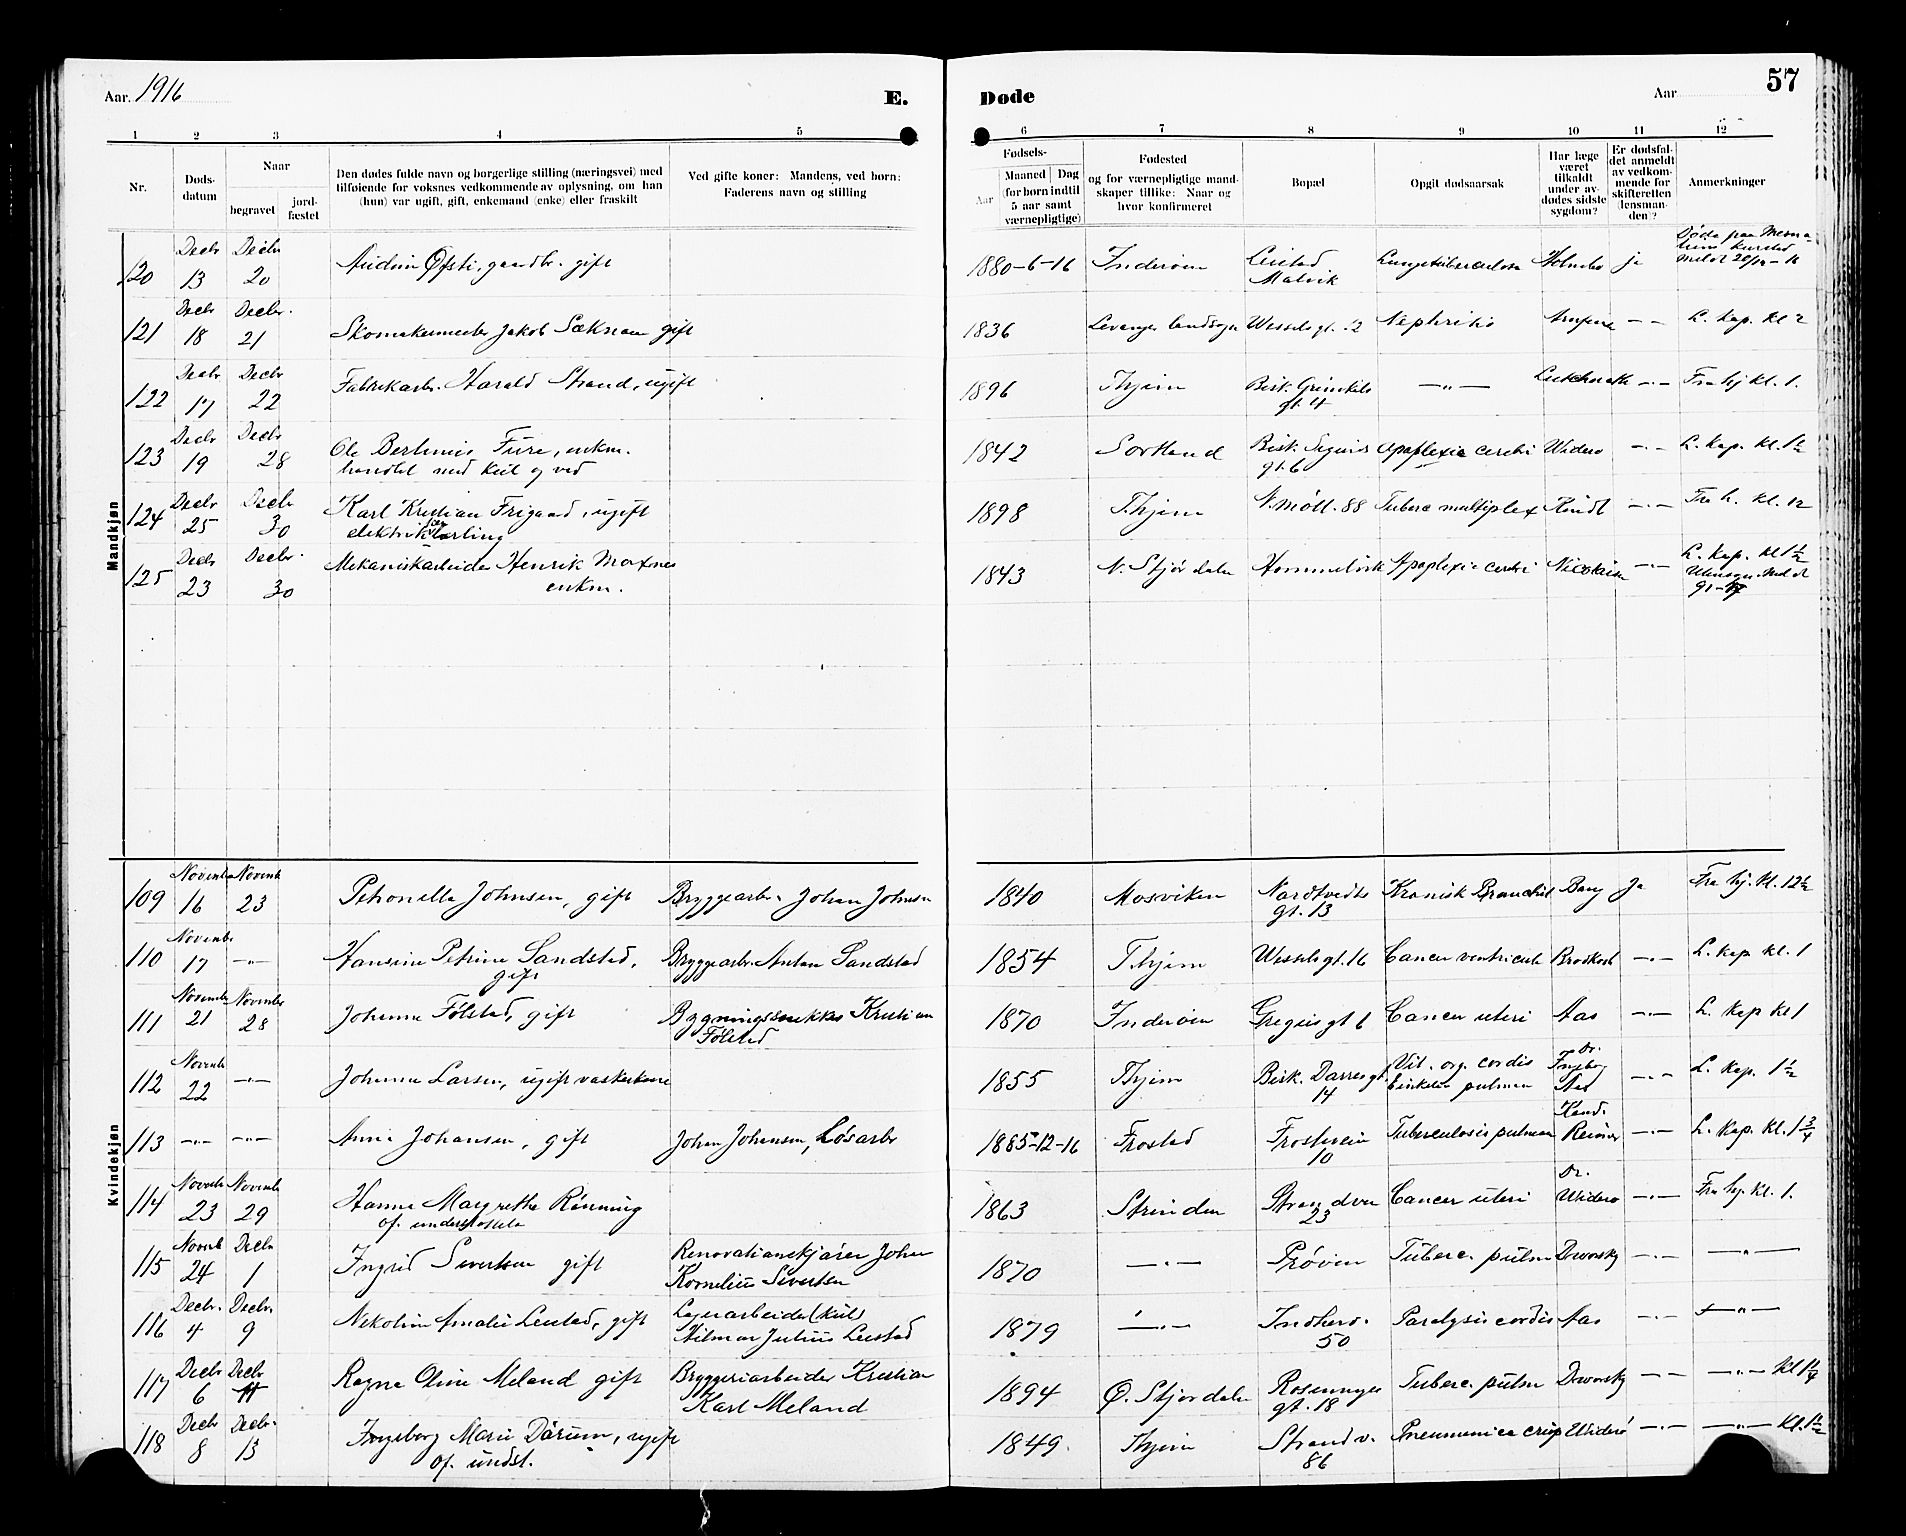 Aar. 1916 E. Døde Aar 57
1 2 3 4 5 6 7 8 9 10 11 12
Nr.
Døds-
datum
Naar
begravet
jord-
fæstet
Den dødes fulde navn og borgerlige stilling (næringsvei) med
tilføiende for voksnes vedkommende av oplysning, om han
(hun) var ugift, gift, enkemand (enke) eller fraskilt
Ved gifte koner: Mandens, ved børn:
Faderens navn og stilling
Fødsels-
Aar
Maaned Dag
(for børn indtil
5 aar samt
værnepligtige)
Fødested
og for værnepligtige mand-
skaper tillike: Naar og
hvor konfirmeret
Bopæl
Opgit dødsaarsak
Har læge
været
tilkaldt
under av-
dødes sidste
sygdom?
Er dødsfal-
det anmeldt
av vedkom-
mende for
skifteretten
(lensman-
den)?
Anmerkninger
Mandkjøn
120 Decbr 13 Decbr 20 Audun Øfsti, gaardbr. gift 1880-6-16 Inderøen Leistad Malvik Lungetuberculose Holmboe ja Døde paa Mesna- liens kursted meldt 20/12-16
121 Decbr 18 Decbr. 21 Skomakermester Jakob Sæknan gift 1836 Levanger landsogn Wesselsgt. 12 Nephritis —"— L. kap. kl 2
122 Decbr 17 Decbr 22 Fabrikarb. Harald Strand, ugift 1896 Thjem Bisk. Grimkels gt. 4 —"— —"— Fra hj kl. 1.
123 Decbr 19 Decbr 28 Ole Berthinius Fure, enkm. handlet med kul og ved 1842 Sortland Bisk. Sigurds gt. 6 Apoplexia cerebri Widerø —"— L. kap. kl. 1½
124 Decbr 25 Decbr 30 Karl Kristian Frigaard, ugift elektrikerlærling 1898 Thjem N. Møll. 88 Tuberc multiplex —"— Fra h. kl. 12
125 Decbr 23 Decbr. 30 Mekaniskarbeider Henrik Moxnes enkm. 1843 N. Stjørdalen Hommelvik Apoplexia cerebri Nicolaisen —"— L. kap. kl 1½
Kvindekjøn
109 Novembr 16 Novemb 23 Petronella Johnsen, gift Bryggearb. Johan Johnsen 1840 Mosviken Nardtvedts gt. 13 Kronisk Bronchit Bang Ja Fra hj. kl. 12½
110 Novembr 17 —"— Hansine Petrine Sandstad, gift Bryggearb. Anton Sandstad 1854 Thjem Wesselsgt. 16 Cancer ventriculi —"— L. kap kl. 1
111 Novembr 21 Novembr 28 Johanna Følstad, gift Bygningssnekker Kristian Følstad 1870 Inderøen Gregusgt 6 Cancer uteri Aas —"— L. kap kl 1
112 Novemb 22 —"— Johanna Larsen, ugift vaskerkone 1855 Thjem Bisk. Darresgt. 14 Vit. org. cordis pulmon Dr. Ingborg Aas —"— L. kap. 1½
113 —"— —"— Anna Johansen, gift Johan Johansen, Løsarb 1885-12-16 Frosted Frostvein 10 Tuberculosis pulmon Kand. Reimers —"— L. kap. kl. 1¾
114 Novemb 23 Novemb 29 Hanna Margrethe Rønning of. understøttede 1863 Strinden Strandvei 23 Cancer uteri Dr. Widerø —"— Fra hj. kl. 1.
115 Novemb 24 Decbr 1 Ingrid Sivertsen gift Renovationskjører Johan Kornelius Sivertsen 1870 —"— Prøven Tuberc. pulm Dworsky —"— —"—
116 Decbr. 4 Decbr. 9 Nekoline Amalie Leistad, gift Lagerarbeider (kul) Hilmar Julius Leistad 1879 —"— Indherv. 50 Paralysis cordis Aas —"— —"—
117 Decbr 6 Decbr 11 Ragna Oline Meland gift Bryggeriarbeider Kristian Karl Meland 1894 Ø. Stjørdalen Rosenborgs gt. 18 Tuberc. pulm Dworsky —"— —"— kl 1¼
118 Decbr 8 Decbr. 13 Ingeborg Marie Dårum, ugift of. undst. 1849. Thjem Strandv. 86 Pneumonica crup Widerø —"— —"— kl. 1½